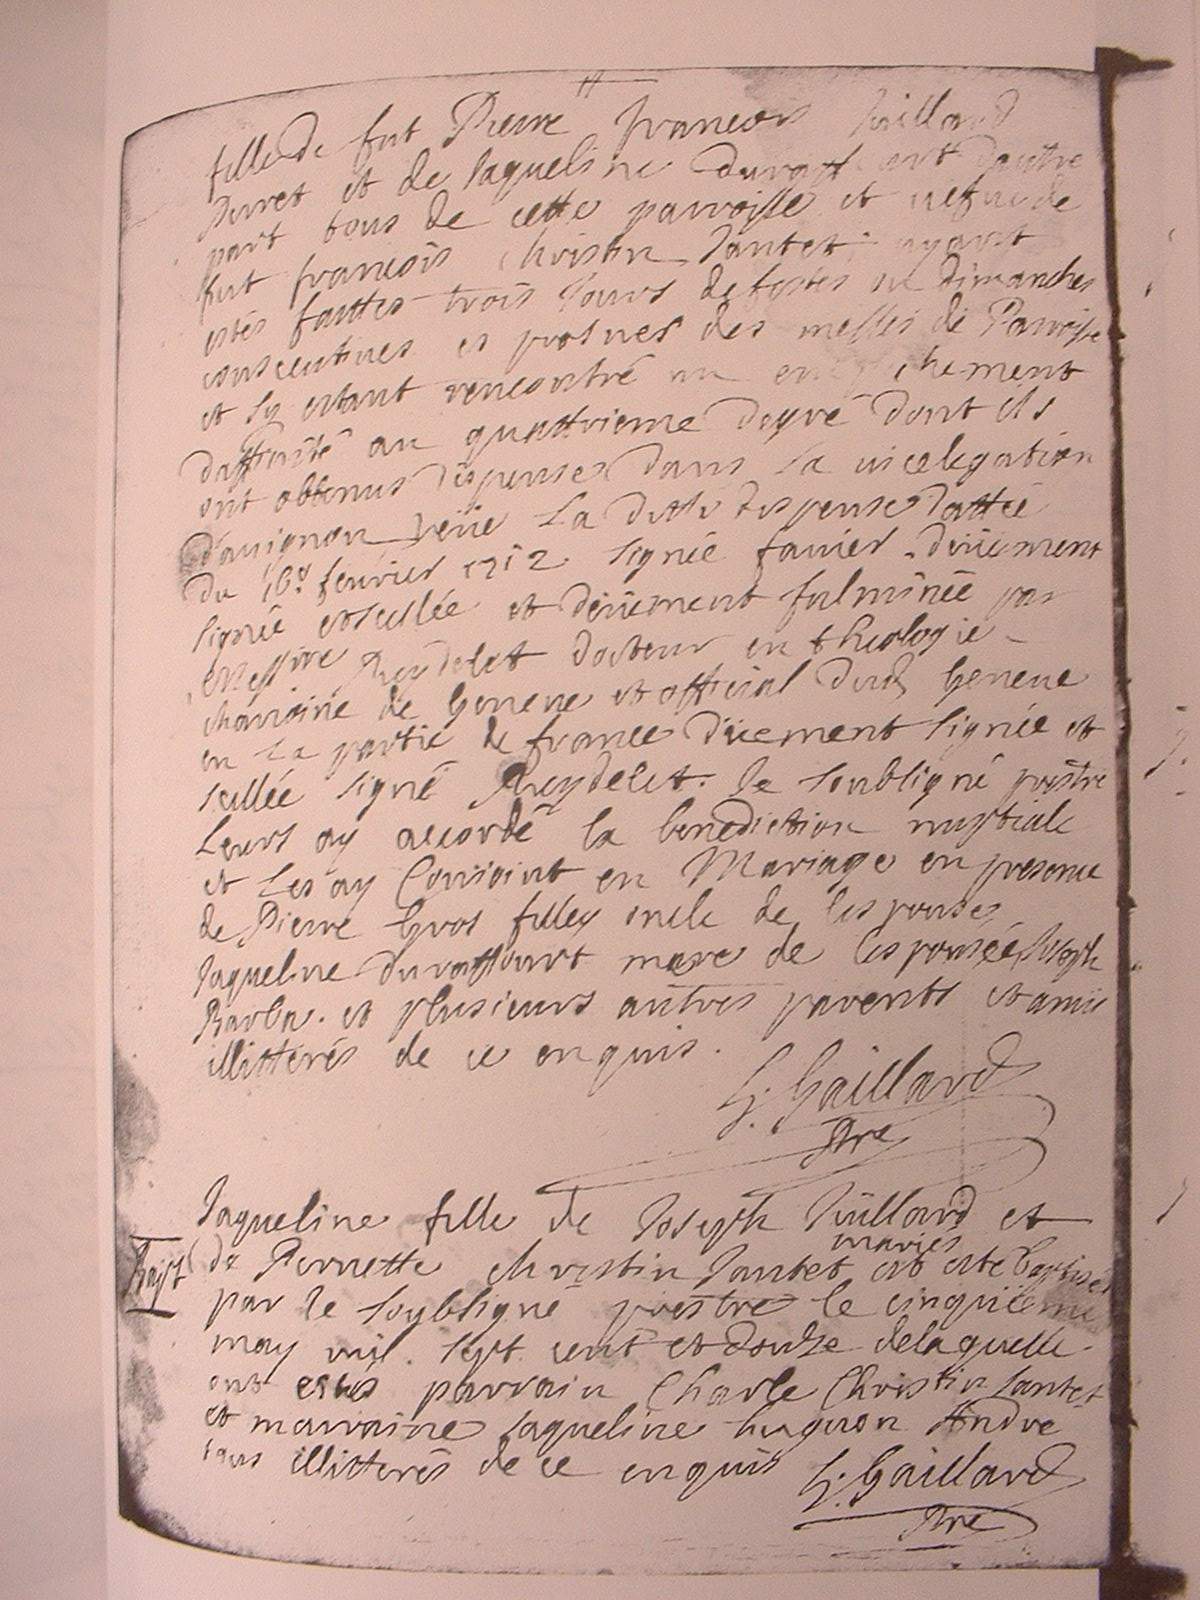 fille de fut Pierre francois Juillard
Perret et de Jaqueline Duraff d'autre
part tous de cette parroisse et uefue de
fut francois Christin Jantet ayant
estés faittes trois Jours de festes ou dimanches
consecutives es prosnes des messes de Parroisse
et sy estant rencontré un empechement
daffinité au quattrieme degré dont ils
ont obtenus dispenses dans la uicelegation
d'auignon veüe la ditte dispense dattée
du 16e feurier 1712 signée fauier düement
signée et scellée et düement fulminée par
Messire Reydelet docteur en theologie
chanoine de Geneue et official dud Geneue
en la partie de france düement signée et
scellée signé Reydelet. Je soubsigné prestre
leurs ay accordé la benediction nuptiale
et les ay Conjoint en Mariage en presence
de Pierre Gros filley oncle de lespouse,
Jaqueline duraffourt mere de lespousée, Joseph
Barba. et plusieurs autres parents et amis
illitterés de ce enquis.
G. Gaillard
Ptre
Jaqueline fille de Joseph Juillard et
mariés
Bapt de Pernette christin Jantet at esté baptisée
par le soubsigné prestre le cinquieme
may mil. sept cent et douze de laquelle
ont estés parrain Charle Christin Jantet
et marraine Jaqueline huguon Andre
tous illitterés de ce enquis G. Gaillard
Ptre